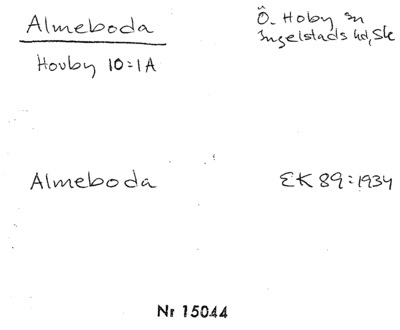 Almeboda
Houby 10:1A
Ö. Hoby sn
Ingelstads hd, Sk
Almeboda
EK 89:1934
Nr 15044